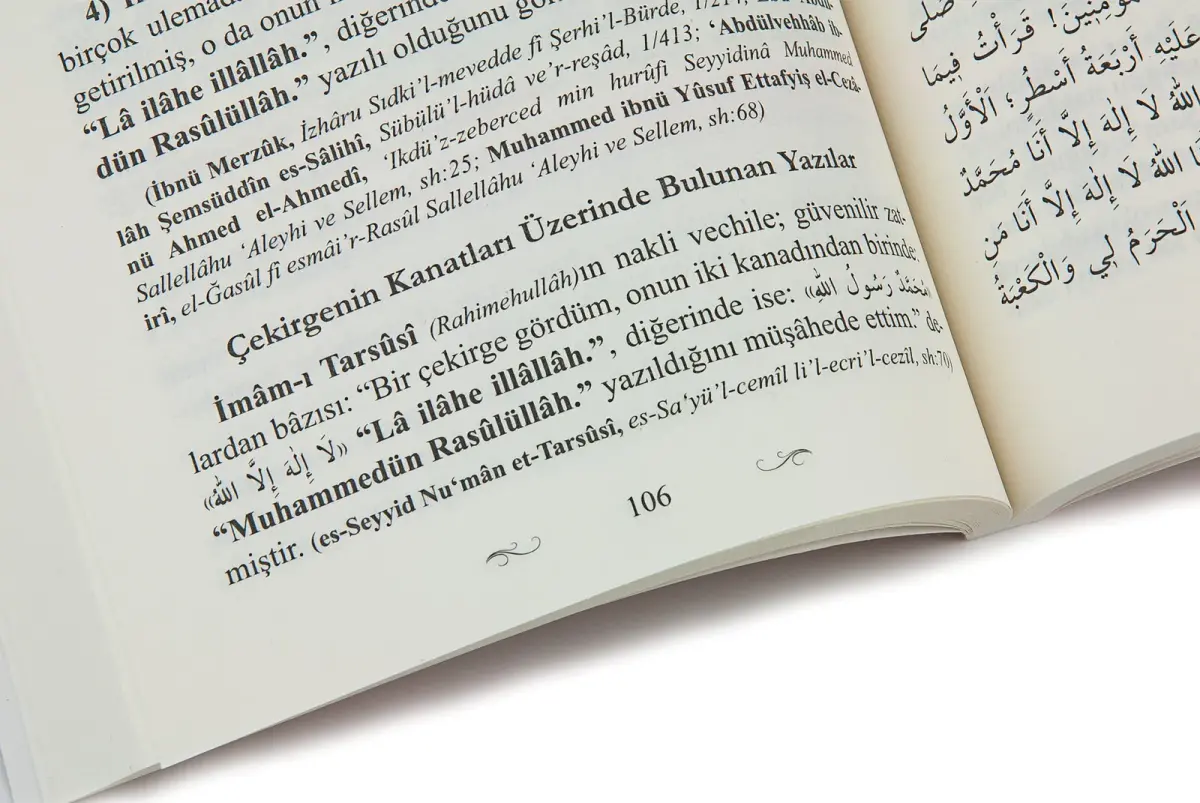 4)
birçok ulema
getirilmiş, o da onun
“Lâ ilâhe illâllâh.”, diğerinde
dün Rasûlüllâh.” yazılı olduğunu
(İbnü Merzûk, İzhâru Sıdki’l-mevedde fî Şerhi’l-Bürde,
lâh Şemsüddîn es-Sâlihî, Sübülü’l-hüdâ ve’r-reşâd, 1/413; ‘Abdülvehhâb ib-
nü Ahmed el-Ahmedî, ‘Ikdü’z-zeberced min hurûfi Seyyidinâ Muhammed
Sallellâhu ‘Aleyhi ve Sellem, sh:25; Muhammed ibnü Yûsuf Ettafyiş el-Cezâ-
irî, el-Ğasûl fî esmâi’r-Rasûl Sallellâhu ‘Aleyhi ve Sellem, sh:68)
Çekirgenin Kanatları Üzerinde Bulunan Yazılar
İmâm-ı Tarsûsî (Rahimehullâh)ın nakli vechile; güvenilir zat-
lardan bâzısı: “Bir çekirge gördüm, onun iki kanadından birinde:
«لَا إِلٰهَ إِلَّا اللهُ» “Lâ ilâhe illâllâh.”, diğerinde ise: «مُحَمَّدٌ رَسُولُ اللهِ»
“Muhammedün Rasûlüllâh.” yazıldığını müşâhede ettim.” de-
miştir. (es-Seyyid Nu‘mân et-Tarsûsî, es-Sa‘yü’l-cemîl li’l-ecri’l-cezîl, sh:70)
106
صلى
قَرَأْتُ فِيمَا
عَلَيْهِ أَرْبَعَةُ أَسْطُرٍ؛ اَلْأَوَّلُ
اللهُ لَا إِلٰهَ إِلَّا أَنَا مُحَمَّدٌ
اللهُ لَا إِلٰهَ إِلَّا أَنَا مَن
الْحَرَمُ لِي وَالْكَعْبَةُ